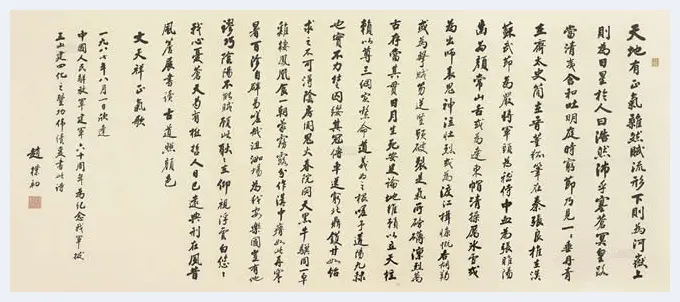 天地有正氣雜然賦流形下則為河嶽上
則為日星於人曰浩然沛乎塞蒼冥皇路
當清夷含和吐明庭時窮節乃見一一垂丹青
在齊太史簡在晉董狐筆在秦張良椎在漢
蘇武節為嚴將軍頭為嵇侍中血為張睢陽
齒為顏常山舌或為遼東帽清操厲冰雪或
為出師表鬼神泣壯烈或為渡江楫慷慨吞胡羯
或為擊賊笏逆豎頭破裂是氣所磅礴凜烈萬
古存當其貫日月生死安足論地維賴以立天柱
賴以尊三綱實繫命道義為之根嗟予遘陽九隸
也實不力楚囚纓其冠傳車送窮北鼎鑊甘如飴
求之不可得陰房闃鬼火春院閟天黑牛驥同一皁
雞棲鳳凰食一朝蒙霧露分作溝中瘠如此再寒
暑百沴自辟易嗟哉沮洳場為我安樂國豈有他
謬巧陰陽不能賊顧此耿耿在仰視浮雲白悠悠
我心憂蒼天曷有極哲人日已遠典刑在夙昔
風簷展書讀古道照顏色
文天祥正氣歌
一九八七年八月一日欣逢
中國人民解放軍建軍六十周年為紀念我軍
建四化之豐功偉績敬書此詩
趙樸初